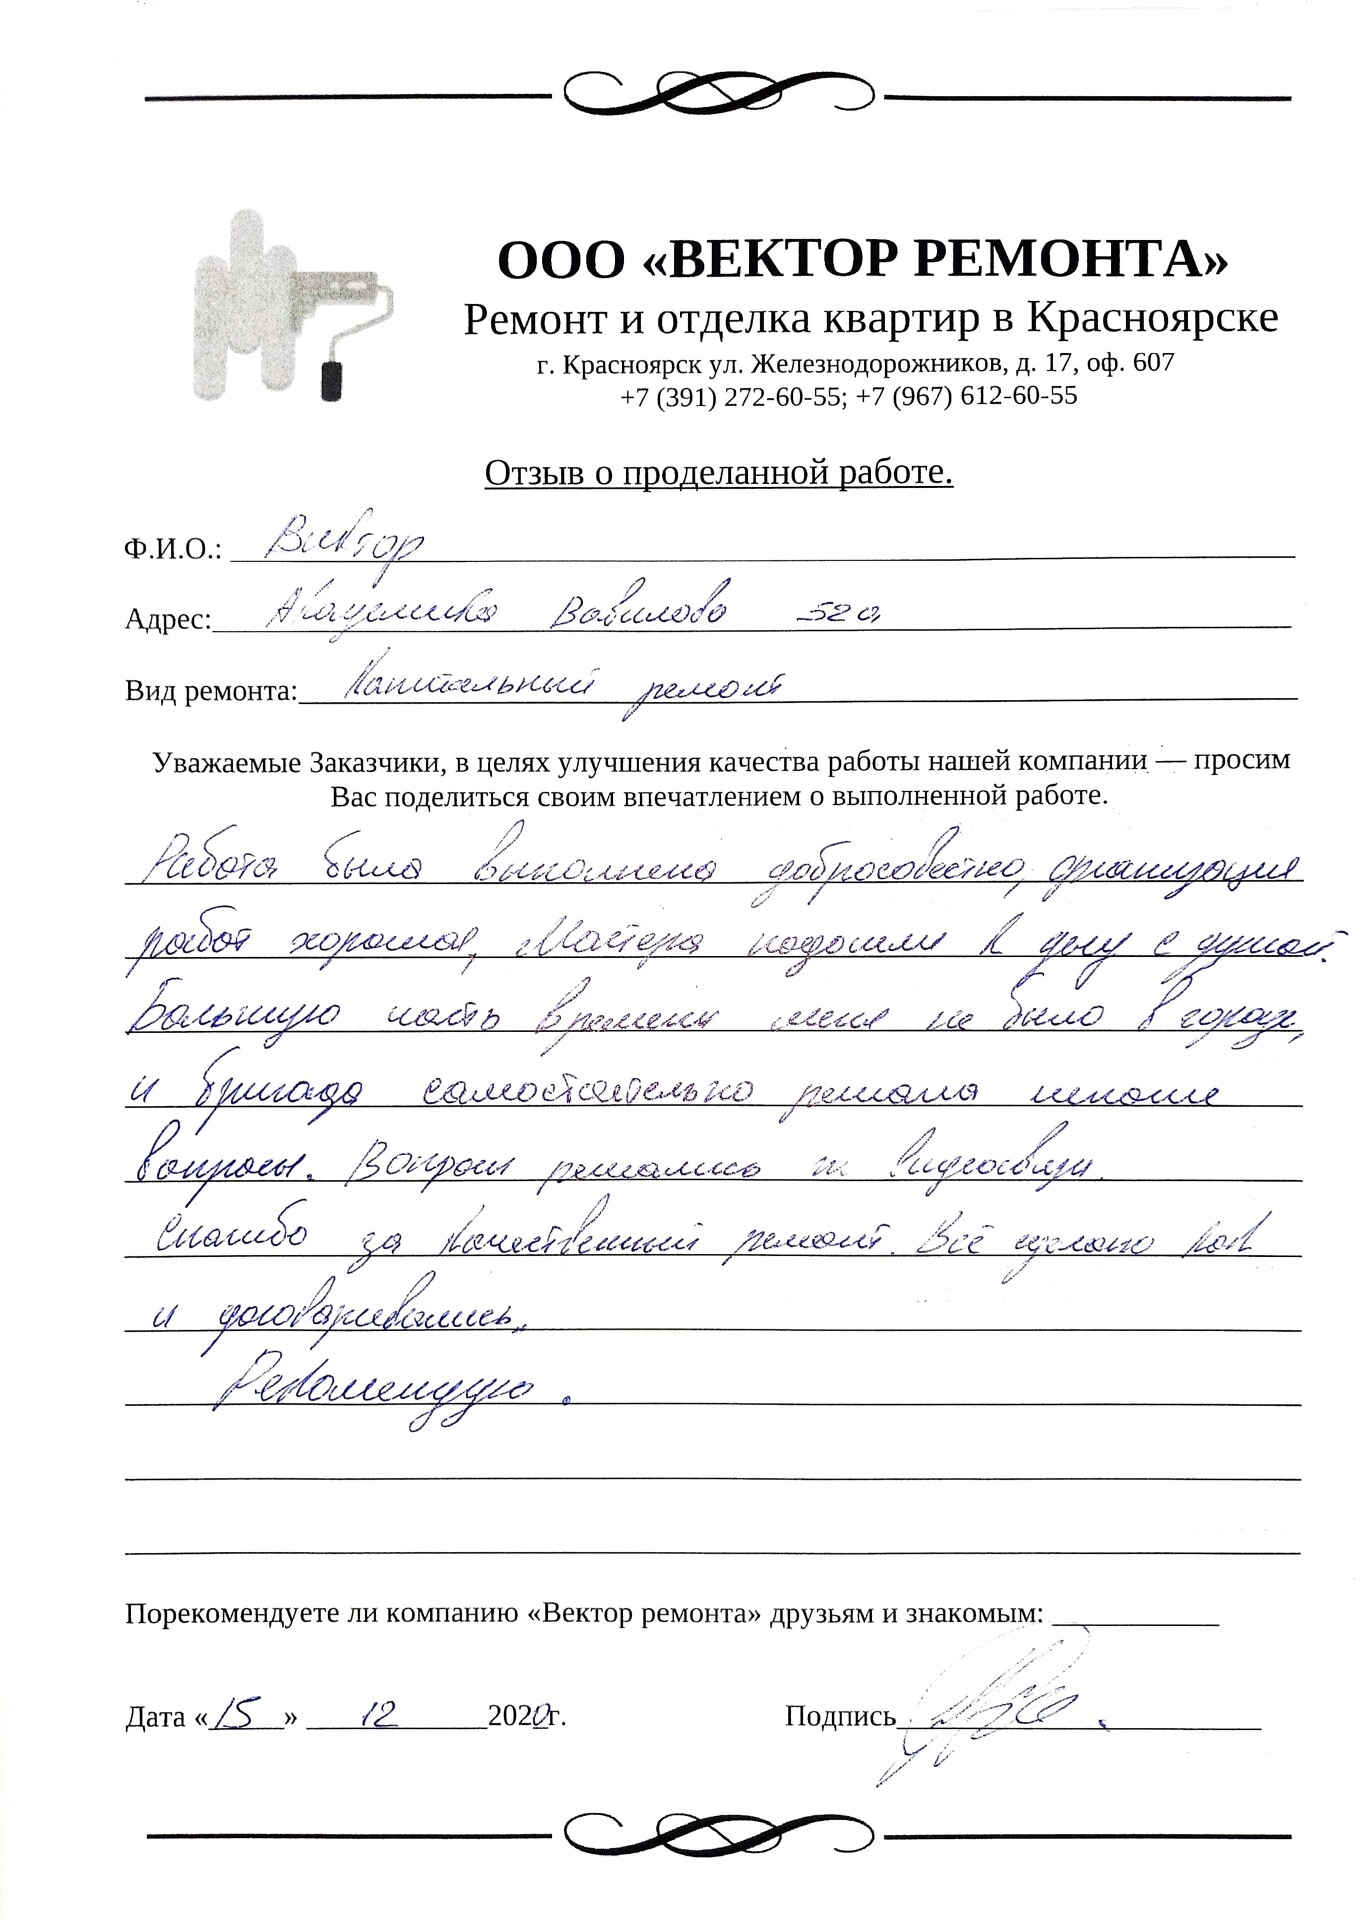 ООО «ВЕКТОР РЕМОНТА»
Ремонт и отделка квартир в Красноярске
г. Красноярск ул. Железнодорожников, д. 17, оф. 607
+7 (391) 272-60-55; +7 (967) 612-60-55
Отзыв о проделанной работе.
Ф.И.О.: Виктор
Адрес: Академика Вавилова 52а
Вид ремонта: Капитальный ремонт
Уважаемые Заказчики, в целях улучшения качества работы нашей компании — просим
Вас поделиться своим впечатлением о выполненной работе.
Работа была выполнена добросовестно, организация
работ хорошая, Мастера подошли к делу с душой.
Большую часть времени меня не было в городе,
и бригада самостоятельно решала
вопросы. Вопросы решались по видеосвязи.
Спасибо за качественный ремонт. Всё сделано как
и договаривались.
Рекомендую.
Порекомендуете ли компанию «Вектор ремонта» друзьям и знакомым:
Дата «15» 12 2020г. Подпись